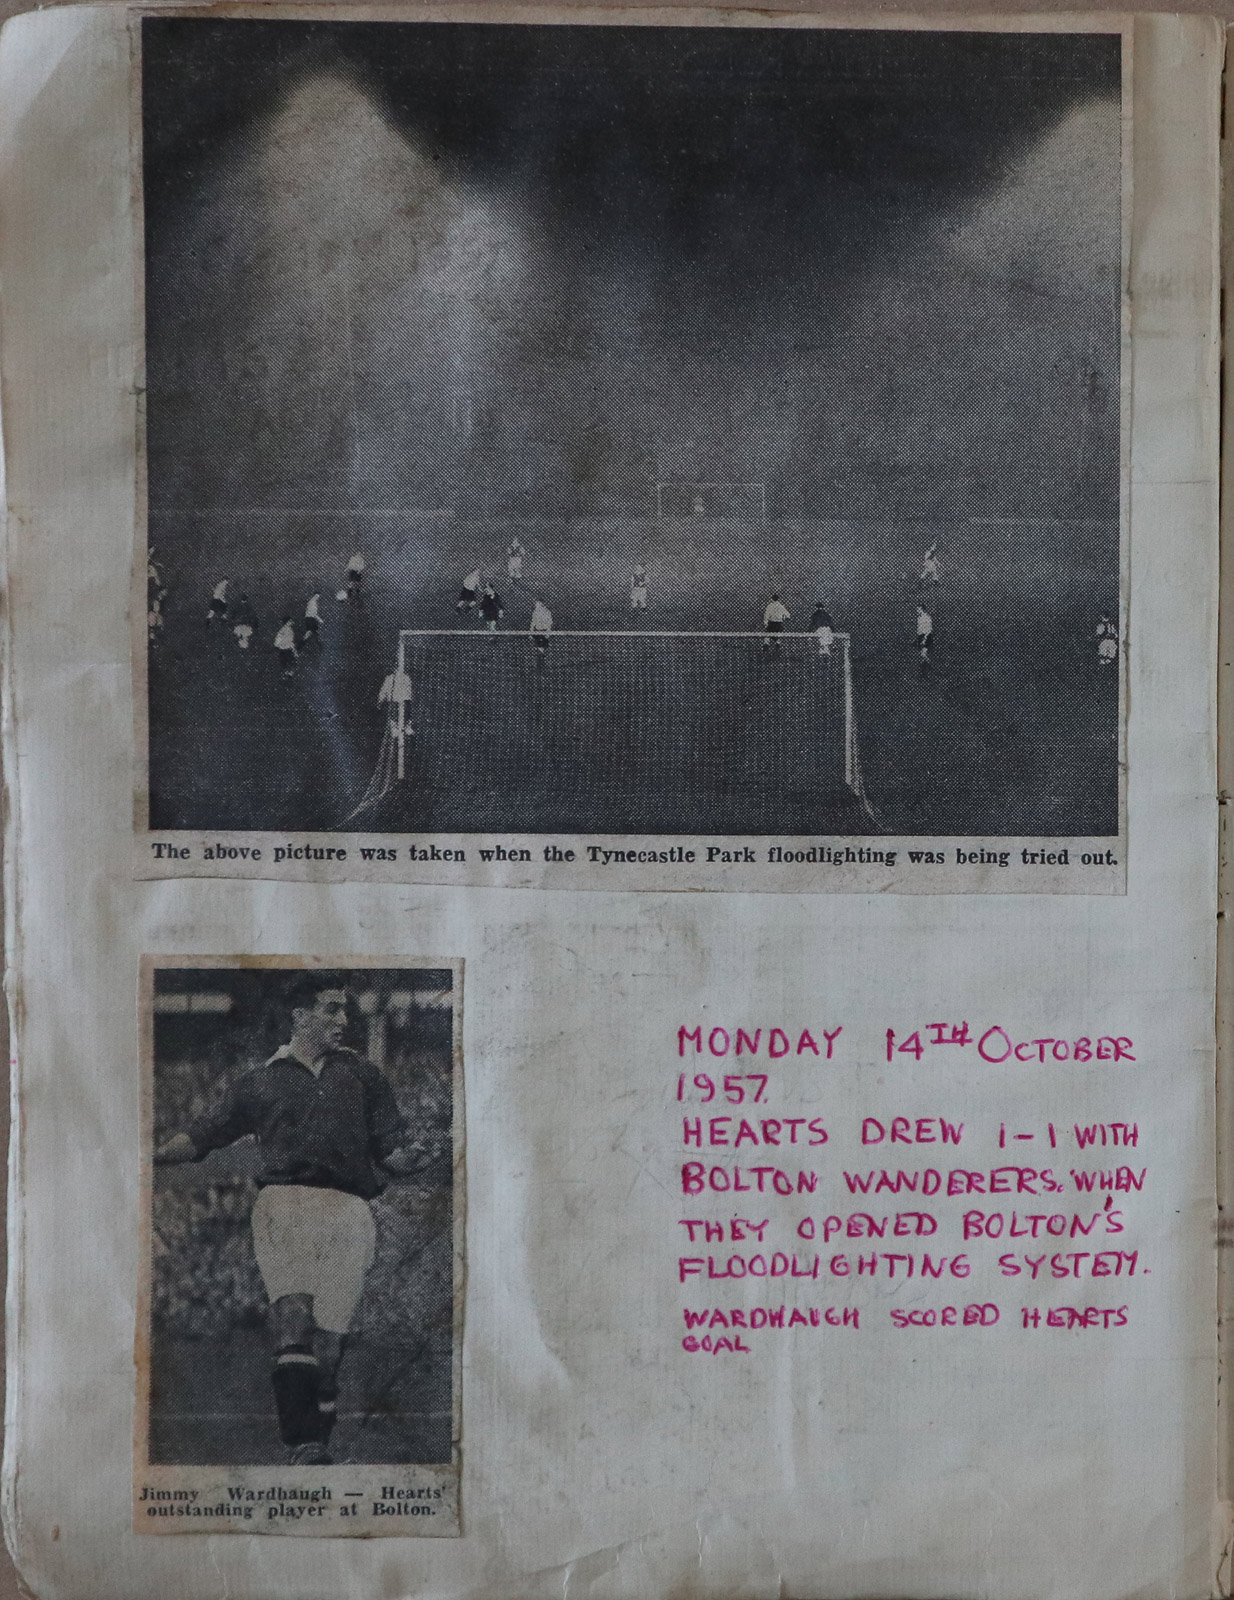 The above picture was taken when the Tynecastle Park floodlighting was being tried out.
MONDAY 14TH OCTOBER
1957.
HEARTS DREW 1-1 WITH
BOLTON WANDERERS. WHEN
THEY OPENED BOLTON'S
FLOODLIGHTING SYSTEM.
WARDHAUGH SCORED HEARTS
GOAL
Jimmy Wardhaugh — Hearts'
outstanding player at Bolton.